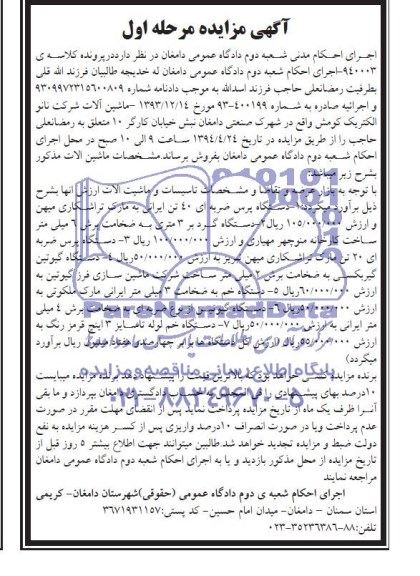 آگهی مزایده مرحله اول
اجرای احکام مدنی شعبه دوم دادگاه عمومی دامغان در نظر دارددرپرونده کلاسه ی
۹۴۰۰۰۳-اجرای احکام شعبه دوم دادگاه عمومی دامغان له خدیجه طالبیان فرزند الله قلی
بطرفیت رمضانعلی حاجب فرزند اسدالله به موجب دادنامه شماره ۹۳۰۹۹۷۲۳۱۵۶۰۰۸۰۹
و اجرائیه صادره به شماره ۴۰۰۱۹۹-۹۳ مورخ ۱۳۹۳/۱۲/۱۴ -ماشین آلات شرکت نانو
الکتریک کومش واقع در شهرک صنعتی دامغان نبش خیابان کارگر ۱۰ متعلق به رمضانعلی
حاجب را از طریق مزایده در تاریخ ۱۳۹۴/۴/۲۴ ساعت ۹ الی ۱۰ صبح در محل اجرای
احکام شعبه دوم دادگاه عمومی دامغان بفروش برساند.مشخصات ماشین الات مذکور
بشرح زیر میباشد:
با توجه به بازار عرضه و تقاضا و مشخصات تاسیسات و ماشیت الات ارزش انها بشرح
ذیل برآورد میگردد:۱-دستگاه پرس ضربه ای ۴۰ تن ایرانی به مارک تراشکاری میهن
و ارزش ۱۰۵/۰۰۰/۰۰۰ ریال۲-دستگاه گرد بر ۳ متری به ضخامت برش ۶ میلی متر
ساخت کارخانه منوچهر مهیاری و ارزش ۱۰۰/۰۰۰/۰۰۰ ریال ۳- دستگاه پرس ضربه
ای ۲۰ تن مارک تراشکاری میهن تبریز به ارزش ۵۰/۰۰۰/۰۰۰ریال ۴- دستگاه گیوتین
گیربکسی به ضخامت برش ۲ میلی متر ساخت شرکت ماشین سازی فرز گیوتین به
ارزش ۶۰/۰۰۰/۰۰۰ریال ۵- دستگاه خم به ضخامت ۳ میلی متر ایرانی مارک ملکوتی به
ارزش ۵۰/۰۰۰/۰۰۰ریال ۶- دستگاه گیوتین از نوع ضربه ای به ضخامت برش ۴ میلی
متر ایرانی به ارزش ۵۰/۰۰۰/۰۰۰ریال ۷- دستگاه خم لوله تاسایز ۳ اینچ قرمز رنگ به
ارزش ۵۵/۰۰۰/۰۰۰ریال (ارزش کل دستگاه ها برابر چهارصد و هفتاد میلیون ریال برآورد
میگردد)
برنده مزایده کسی خواهد بود که بالاترین قیمت را پیشنهاد دهد برنده مزایده میبایست
۱۰درصد بهای پیشنهادی را فی المجلس به حساب دادگستری دامغان بپردازد و ما بقی
آنرا ظرف یک ماه از تاریخ مزایده پرداخت نماید پس از انقضای مهلت مقرر در صورت
عدم پرداخت ویا در صورت انصراف ۱۰درصد واریزی پس از کسر هزینه مزایده به نفع
دولت ضبط و مزایده تجدید خواهد شد.طالبین میتوانند جهت اطلاع بیشتر ۵ روز قبل از
تاریخ مزایده از محل مذکور بازدید و یا به اجرای احکام شعبه دوم دادگاه عمومی دامغان
مراجعه نمایند
اجرای احکام شعبه ی دوم دادگاه عمومی (حقوقی)شهرستان دامغان- کریمی
استان سمنان - دامغان- میدان امام حسین- کد پستی:۳۶۷۱۹۳۱۱۵۷
تلفن:۸۸-۳۵۲۳۶۳۸۶-۰۲۳